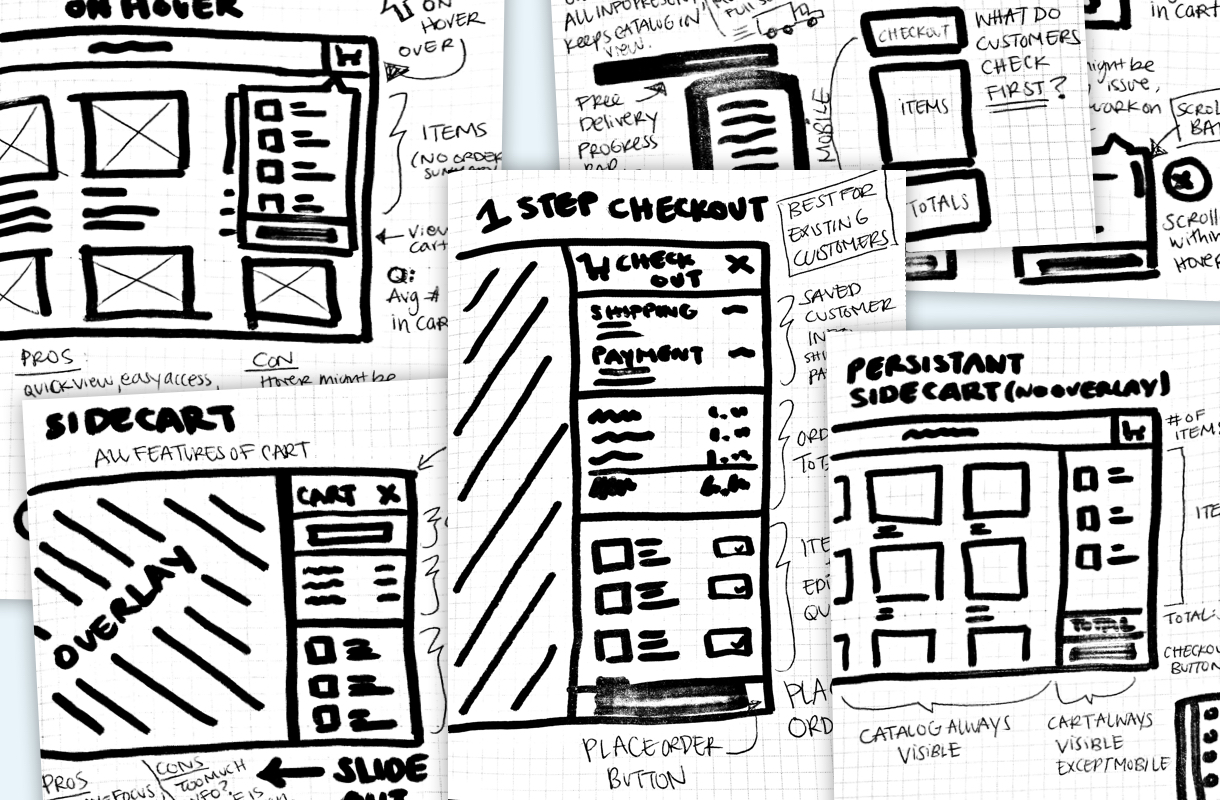 ON HOVER
ON
HOVER
OVER
ITEMS
(NO ORDER
View
cart
Q:
Avg #
in CAR
PROS:
QUICK VIEW, easy access,
CON
Hover might be
ALL INFO PRESENT,
KEEPS CATALOG IN
VIEW.
FREE
Delivery
PROGRESS
BAR
MOBILE
CHECKOUT
ITEMS
TOTALS
WHAT DO
CUSTOMERS
CHECK
FIRST?
in Cart
might be
issue,
work on
SCROLL
BAR
SCROLL
within
Hover
SIDECART
ALL FEATURES OF CART
OVERLAY
CART X
PROS
CONS
TOO MUCH
INFO?
SLIDE
OUT
1 STEP CHECKOUT
BEST FOR
EXISTING
CUSTOMERS
CHECK
OUT X
SHIPPING
PAYMENT
SAVED
CUSTOMER
INFO
SHI
PA
ORD
TOT
ITE
EDI
QU
PLA
ORD
PLACE ORDER
BUTTON
PERSISTANT
SIDECART (NO OVERLAY)
# OF
ITEMS
ITE
TOTAL
TOTAL:
CHECKOU
BUTTON
CATALOG ALWAYS
VISIBLE
CART ALWAYS
VISIBLE
EXCEPT MOBILE